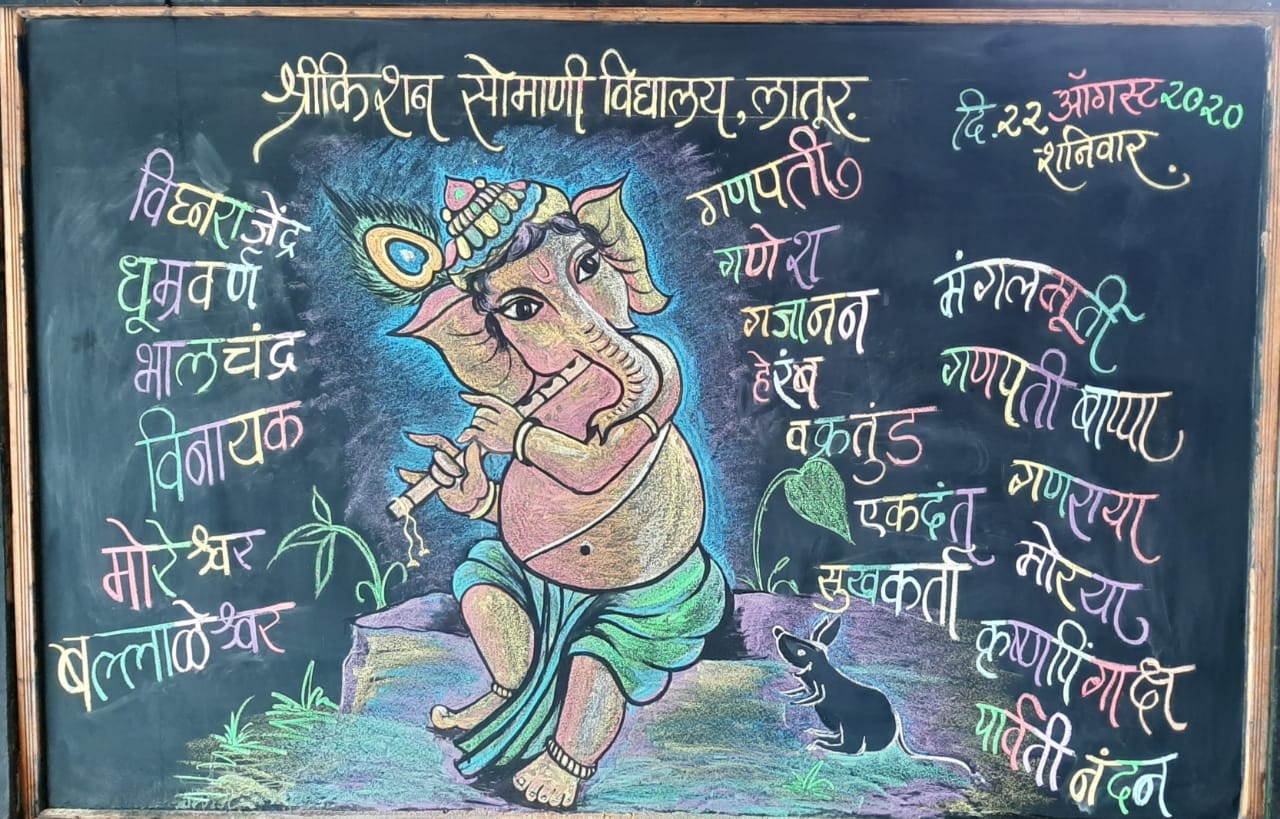 श्रीकिशन सोमाणी विद्यालय, लातूर.
दि. २२ ऑगस्ट २०२०
शनिवार.
विघ्नराजेंद्र
धूम्रवर्ण
भालचंद्र
विनायक
मोरेश्वर
बल्लाळेश्वर
गणपती
गणेश
गजानन
हेरंब
वक्रतुंड
एकदंत
सुखकर्ता
मंगलमूर्ती
गणपती बाप्पा
गणराया
मोरया
कृष्णपिंगाक्ष
पार्वती नंदन